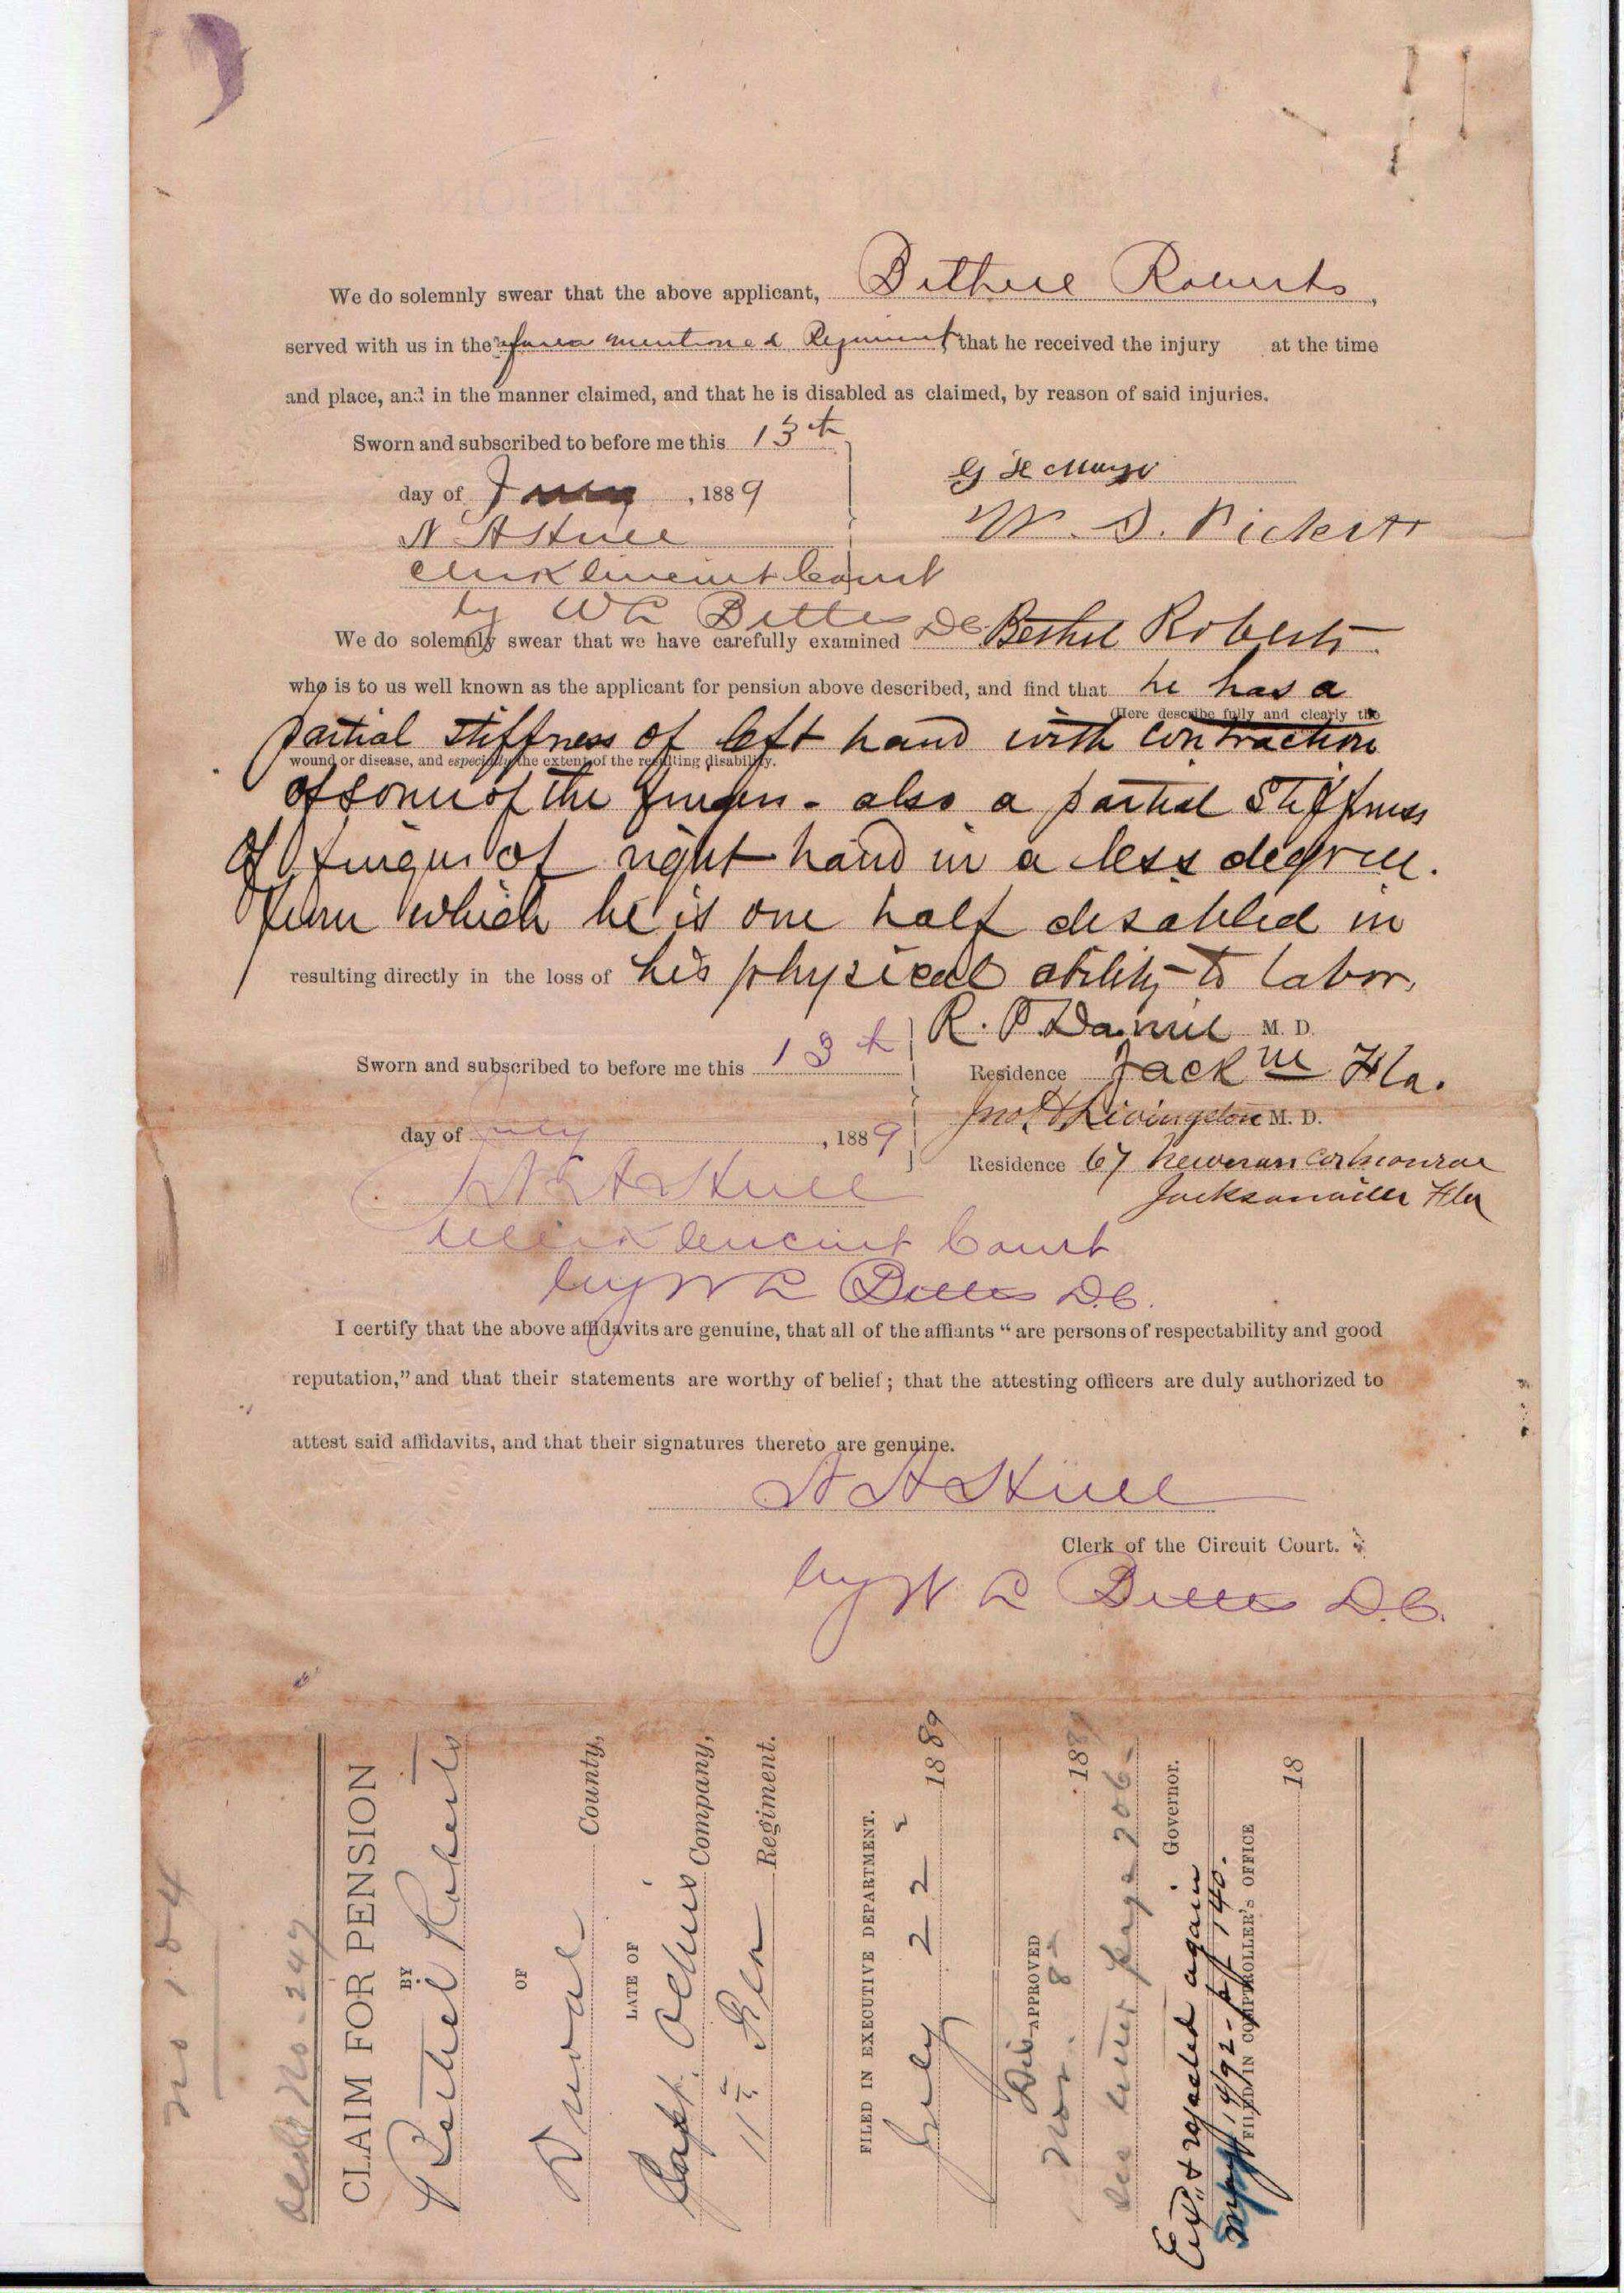 We do solemnly swear that the above applicant, Bethuel Roberts,
served with us in the mentioned Regiment, that he received the injury at the time
and place, and in the manner claimed, and that he is disabled as claimed, by reason of said injuries.
Sworn and subscribed to before me this 13th
day of , 1889
G H Mays
N A Hull
W. S. Pickett
Clerk Circuit Court
by W L Bettes D C
We do solemnly swear that we have carefully examined Bethel Roberts
who is to us well known as the applicant for pension above described, and find that he has a
(Here describe fully and clearly the
partial stiffness of left hand with contraction
wound or disease, and especially the extent of the resulting disability.
of some of the fingers - also a partial stiffness
of fingers of right hand in a less degree.
from which he is one half disabled in
resulting directly in the loss of his physical ability to labor.
R. P. Daniel M. D.
Sworn and subscribed to before me this 13th
Residence Jack'lle Fla.
Jno. H Livingston M. D.
day of July , 1889
Residence 67 Newnan cor Monroe
Jacksonville Fla
N A Hull
Clerk Circuit Court
by W L Bettes D.C.
I certify that the above affidavits are genuine, that all of the affiants "are persons of respectability and good
reputation," and that their statements are worthy of belief; that the attesting officers are duly authorized to
attest said affidavits, and that their signatures thereto are genuine.
N A Hull
Clerk of the Circuit Court.
by W L Bettes D.C.
No 154
No. 247
CLAIM FOR PENSION
BY
Bethel Roberts
OF
Duval County,
LATE OF
Capt. Company,
11th Regiment.
FILED IN EXECUTIVE DEPARTMENT.
July 22 1889
Dis APPROVED
Nov. 8 1889
See letter page 206
Governor.
Ex'd & rejected again
14/92 - p 140.
FILED IN COMPTROLLER'S OFFICE
18